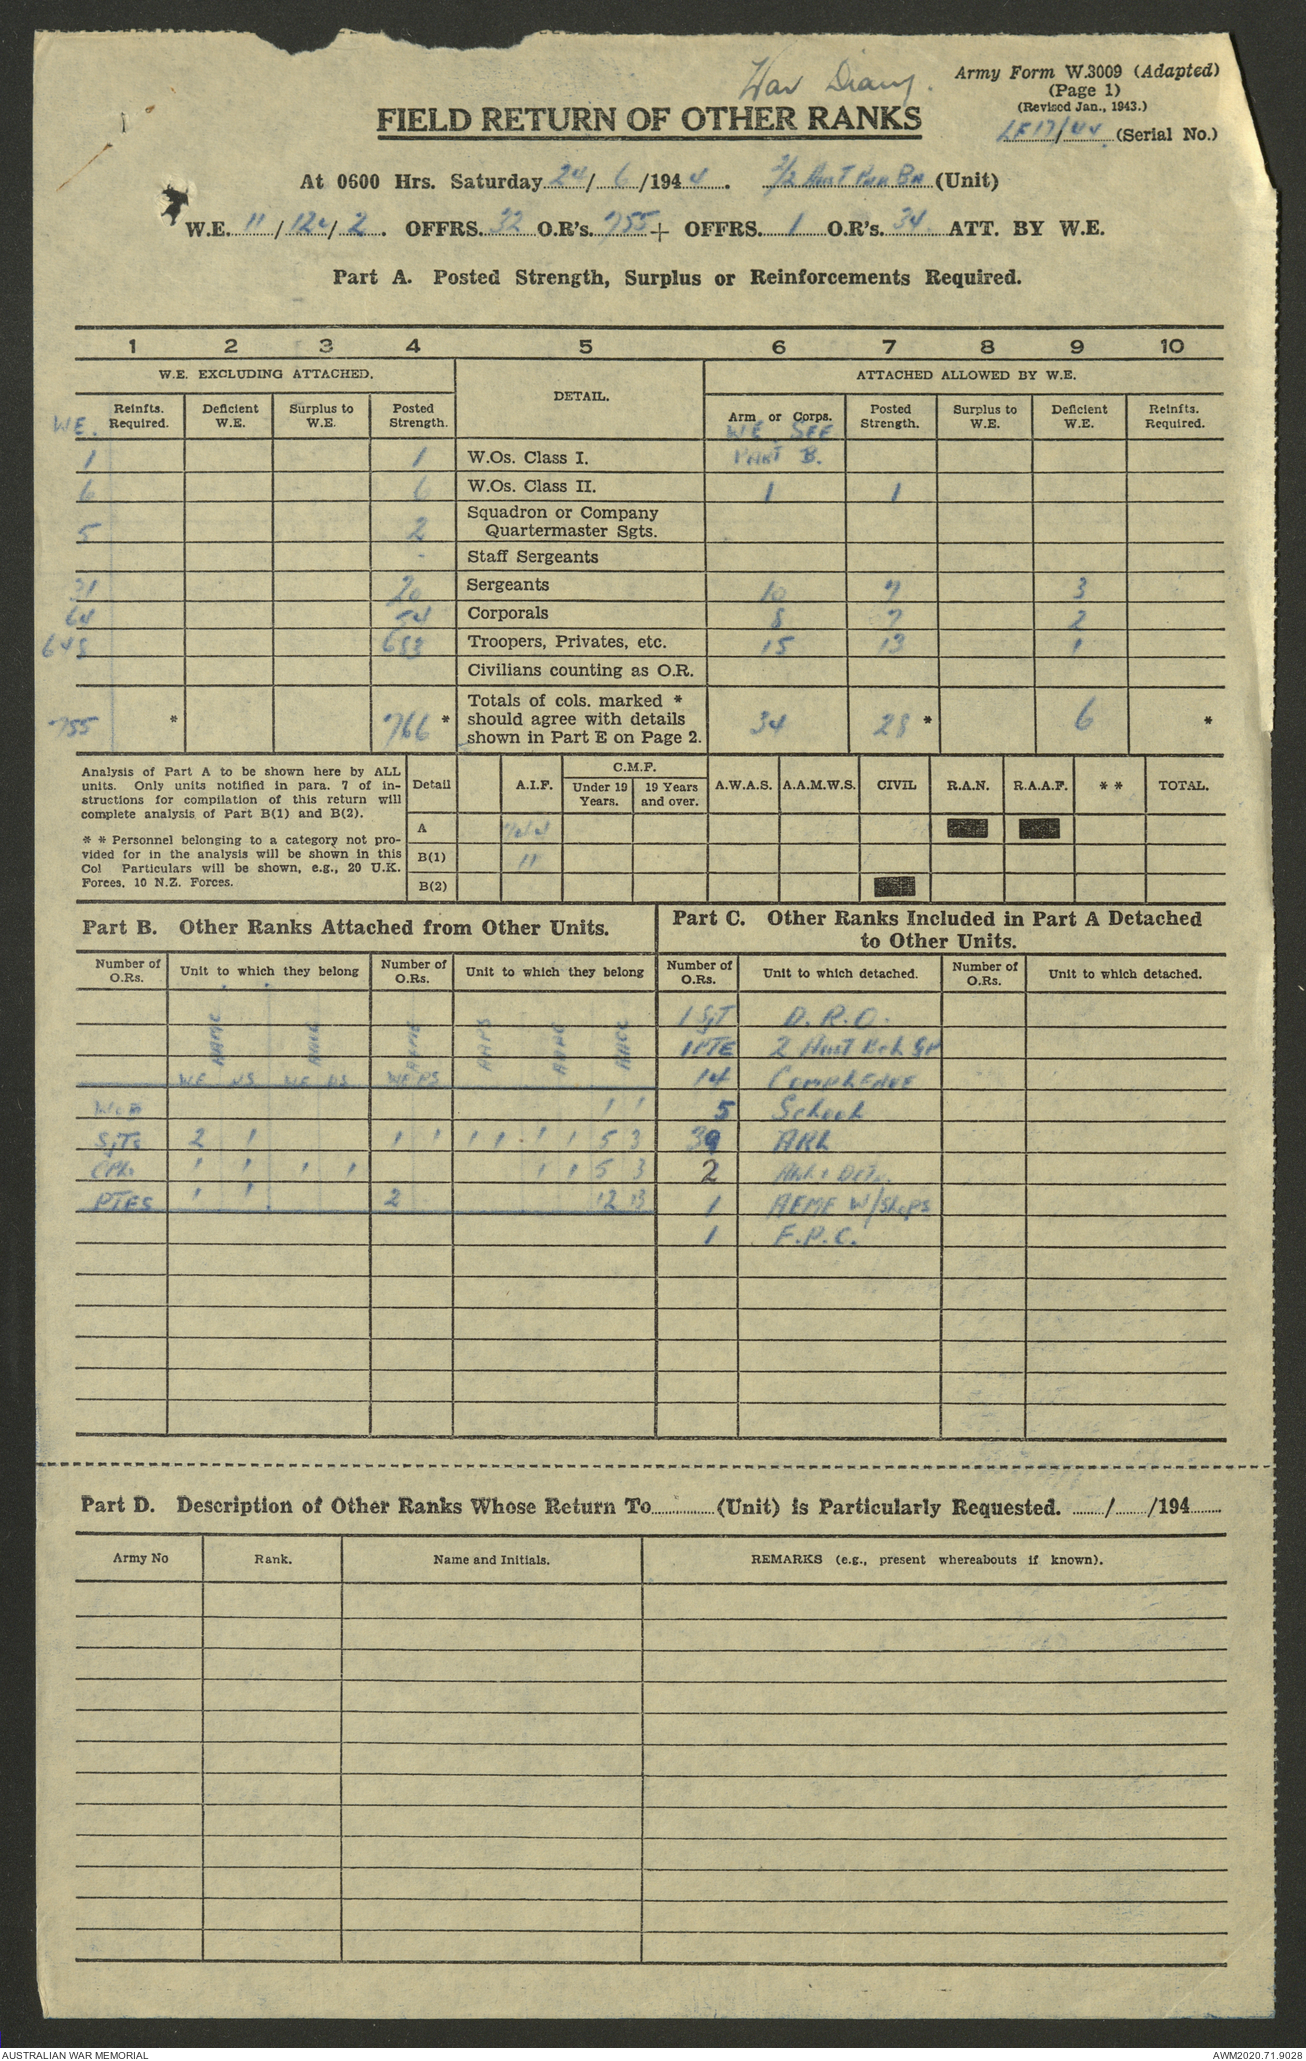 War Diary.
Army Form W.3009 (Adapted)
(Page 1)
(Revised Jan., 1943.)
LF17/44 (Serial No.)
FIELD RETURN OF OTHER RANKS
At 0600 Hrs. Saturday 24/6/1944. 2/2 Aust Pnr Bn (Unit)
W.E. 11/124/2. OFFRS. 32 O.R's. 755 + OFFRS. 1 O.R's. 34 ATT. BY W.E.
Part A. Posted Strength, Surplus or Reinforcements Required.
1 2 3 4 5 6 7 8 9 10
W.E. EXCLUDING ATTACHED. DETAIL. ATTACHED ALLOWED BY W.E.
WE. Reinfts. Required. Deficient W.E. Surplus to W.E. Posted Strength. Arm or Corps. Posted Strength. Surplus to W.E. Deficient W.E. Reinfts. Required.
WE SEE
1 1 W.Os. Class I. PART B.
6 6 W.Os. Class II. 1 1
5 2 Squadron or Company Quartermaster Sgts.
- Staff Sergeants
31 20 Sergeants 10 7 3
64 54 Corporals 8 7 2
648 683 Troopers, Privates, etc. 15 13 1
Civilians counting as O.R.
755 * 766 * Totals of cols. marked * should agree with details shown in Part E on Page 2. 34 28 * 6 *
Analysis of Part A to be shown here by ALL
units. Only units notified in para. 7 of in-
structions for compilation of this return will
complete analysis of Part B(1) and B(2).
* * Personnel belonging to a category not pro-
vided for in the analysis will be shown in this
Col Particulars will be shown, e.g., 20 U.K.
Forces, 10 N.Z. Forces.
Detail A.I.F. C.M.F. Under 19 Years. 19 Years and over. A.W.A.S. A.A.M.W.S. CIVIL R.A.N. R.A.A.F. * * TOTAL.
A
B(1) 11
B(2)
Part B. Other Ranks Attached from Other Units.
Number of O.Rs. Unit to which they belong Number of O.Rs. Unit to which they belong
AAMC AAOC AEME AAPS AAPC AACC
WE PS WE PS WE PS
WOII 1 1
SJTs 2 1 1 1 1 1 1 1 5 3
CPLs 1 1 1 1 1 1 5 3
PTES 1 1 2 12 13
Part C. Other Ranks Included in Part A Detached
to Other Units.
Number of O.Rs. Unit to which detached. Number of O.Rs. Unit to which detached.
1 SJT D.R.O.
1 PTE 2 Aust
14
5 School
39 ARL
2
1 AEME W/Shops
1 F.P.C.
Part D. Description of Other Ranks Whose Return To.............(Unit) is Particularly Requested. ....../....../194......
Army No Rank. Name and Initials. REMARKS (e.g., present whereabouts if known).
AUSTRALIAN WAR MEMORIAL
AWM2020.71.9028